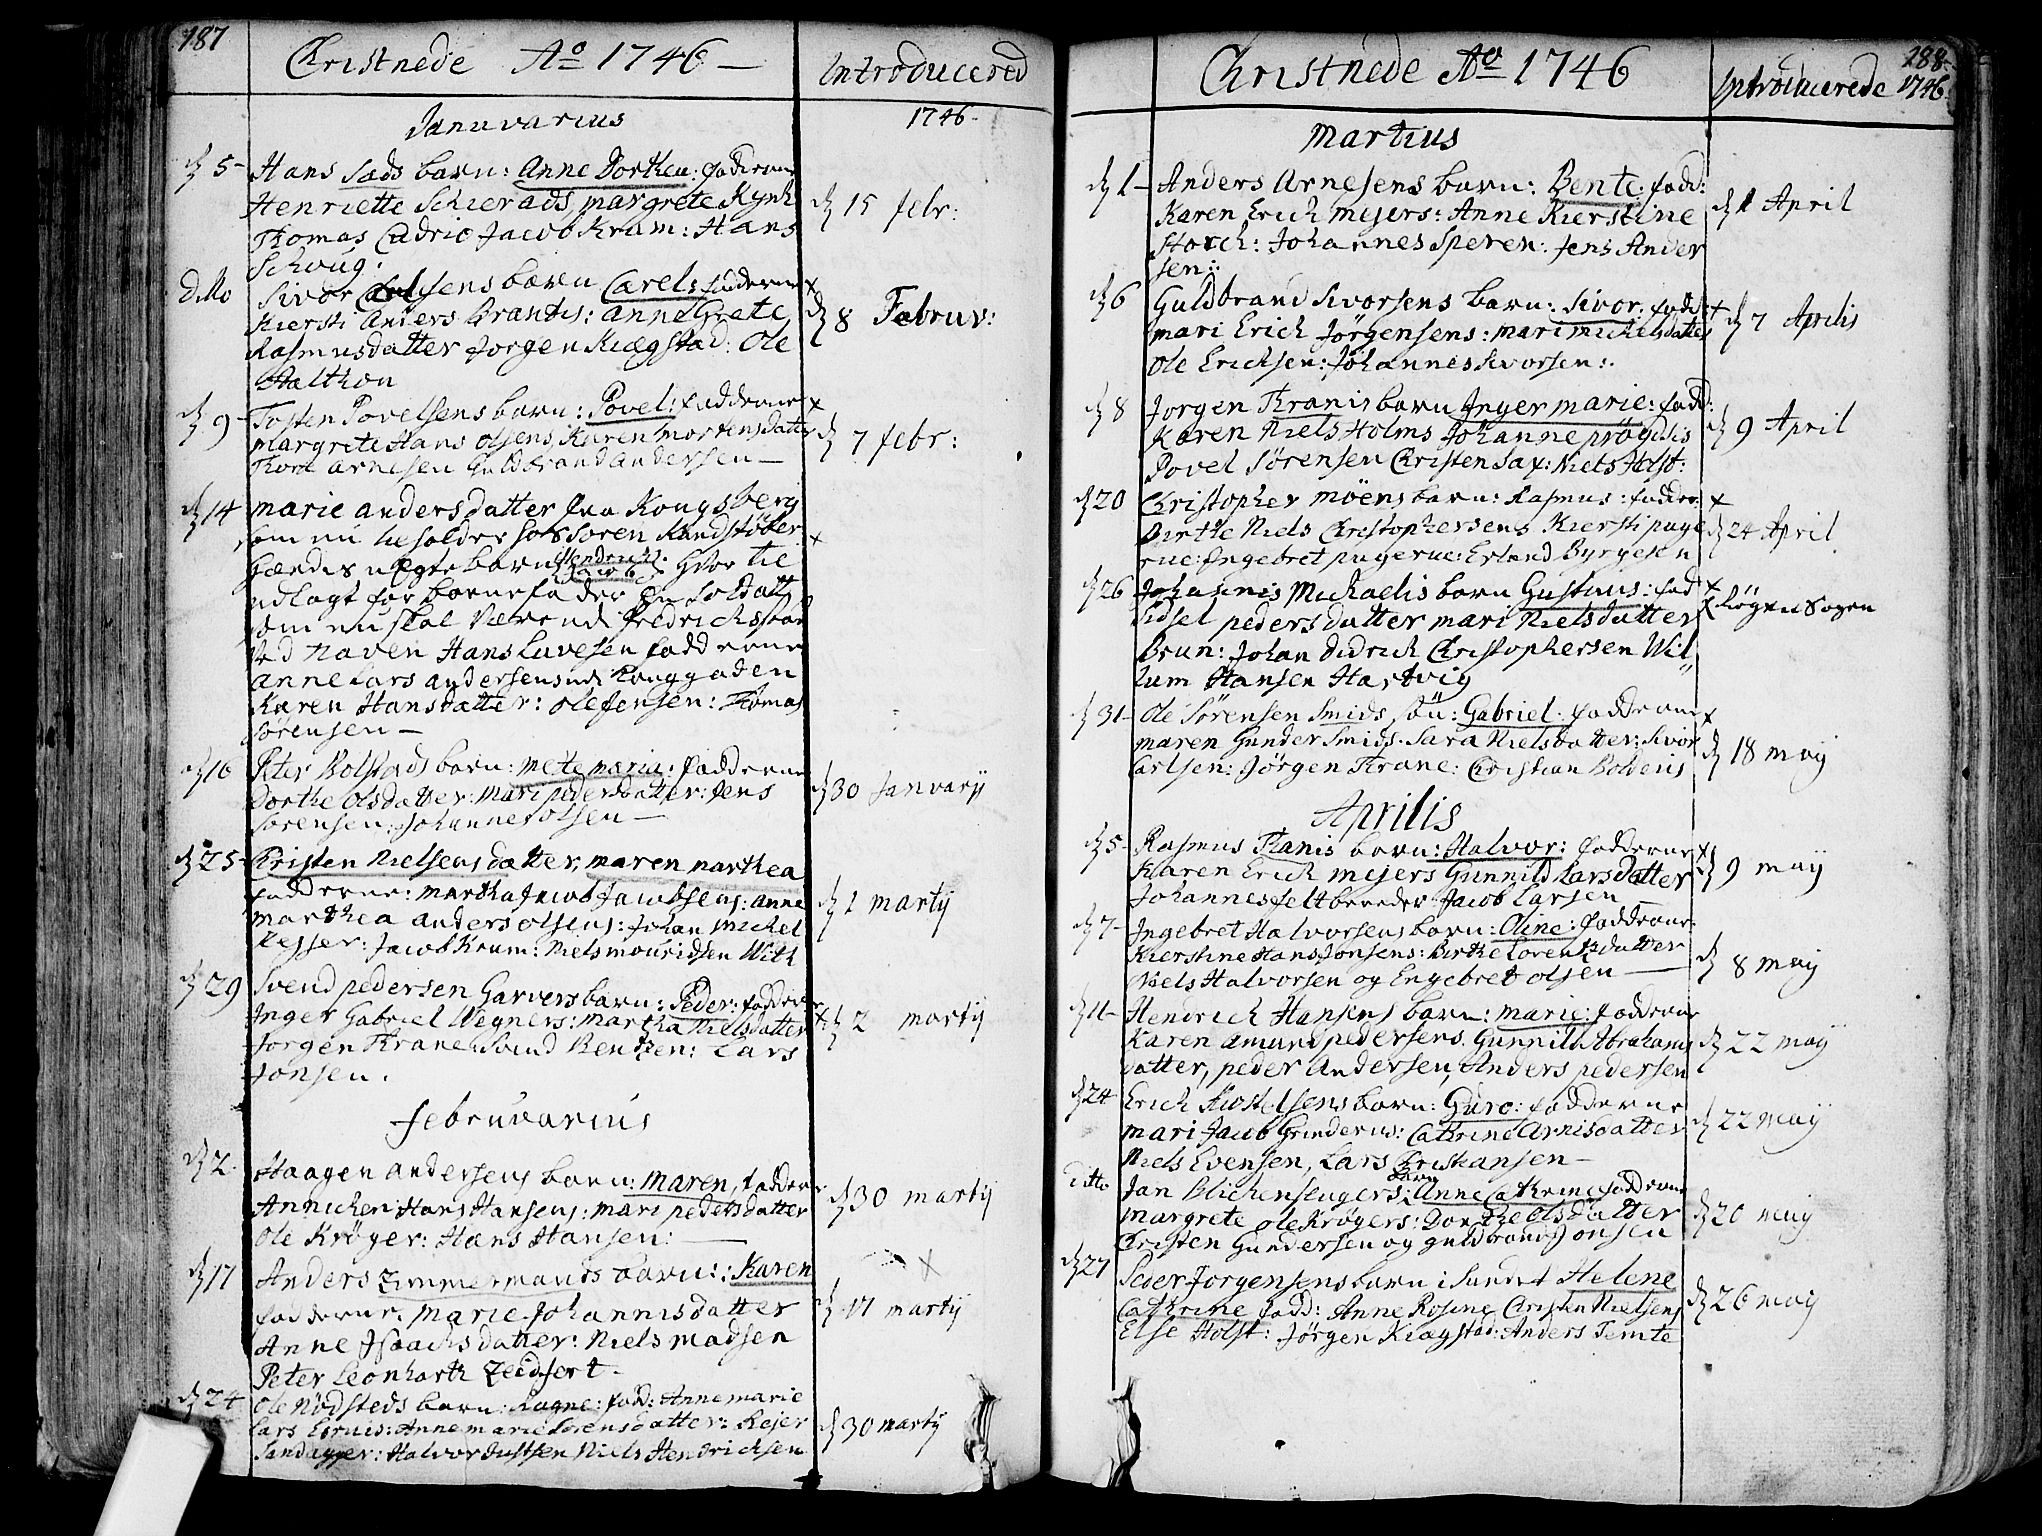 187
Christnede Aº 1746 —
Introducered
1746.
Januvarius
d 5 – Hans Sads barn: Anne Dorthea: fadderne
Henriette Schierads, margrete Kynk
Thomas Cadrio Jacob Kram: Hans
Schoug:
d 15 febr:
ditto Sivor Carlsens barn Carel: fadderne
Kiersti Anders Brantis: anne Grete
Rasmusdatter Jorgen Kiægstad: Ole
Aalthon
x d 8 Februv:
d 9 – Tosten Povelsens barn: Povel: fadderne
margrete Hans Olsens, Karen mortensdatter
Thore arnesen Guldbrand andersen —
x d 7 febr:
d 14 marie andersdatter fra Kongsberg
som nu beholder hos Soren Kandstøber
hendis uægte barn Hendrich Jacob: Hvor til
udlagt for barnefader en Soldatt
som nu skal være ved fredrichstad
ved naven Hans Luvesen fadderne
anne Lars andersens udi Konggaden
Karen Hansdatter: ole Jensen: Thomas
Sørensen —
x
d 16 Peter Bolstads barn: mete maria: fadderne
Dorthe olsdatter: mari pedersdatter: Jens
Sorensen: Johannes olsen —
d 30 Januarij
d 25 – Christen Nielsens datter, maren marthea
fadderne: martha Jacob Jacobsens: anne
marthea anders olsens: Johan michel
Lesser: Jacob Kram: Niels mouridsen With
d 1 martij
d 29 Svend pedersen Garvers barn: Peder: fadderne
Inger Gabriel Wegners: martha Nielsdatter
Jorgen Krane Svend Bentzen: Lars
Jonsen.
x d 2 martij
februvarius
d 2. Haagen andersens barn: maren, faddere
Annichen Hans Hansens: mari pedersdatter
Ole Krøger: Hans Hansen: —
d 30 martij
d 17 Anders Zimmermands barn: Karen
fadderne: marie Johannisdatter
Anne Isaachsdatter: Niels madsen
Peter Leonharth Zeidfert.
x
d 17 martij
d 24 Ole Nødsteds barn: Ragne: fad: Anne marie
Lars Esruis: Anne marie Sorensdatter: Rejer
Sandager: Halvor Justsen Niels Hendrichsen
d 30 martij
288.
Christnede Aº 1746
Introducerede 1746
Martius
d 1 – Anders Arnesens barn: Bente. fadd:
Karen Erich mejers: Anne Kierstine
Storch: Johannes Speren: Jens Ander
sen:
d 1 April
d 6 Guldbrand Sivorsens barn: Sivor: fadd:
mari Erich Jörgensens: mari mickelsdatter
Ole Erichsen: Johannes Sivorsen:
x d 7 Aprilis
d 8 Jorgen Kranis barn Inger marie: fadd:
Karen Niels Holms Johanne prøgdis
Povel Sørensen Christen Sax: Niels Holst:
d 9 April
d 20 Christopher møens barn: Rasmus: fadder:
Birthe Niels Christophersens Kiersti puge
rue: Ingebret pugerue: Erland Byrgesen
x d 24 April
d 26 Johannis Michaelis barn Gustaus: fad
Sidsel pedersdatter mari Nielsdatter
Brun: Johan Didrich Christophersen Wil
lum Hansen Hartvig
x i Røgen Sogen
d 31 – Ole Sörensen Smids sön: Gabriel. fadderne
maren Gunder Smids. Sara Nielsdatter: Sivor
Carlsen: Jörgen Krane: Christian Bolvens
x d 18 maij
Aprilis
d 5 – Rasmus Kranis barn: Halvor: fadderne
Karen Erich mejers Gunnild Larsdatter
Johannes feltbereder Jacob Larsen —
x d 9 maij
d 7 – Ingebret Halvorsens barn: Oline: fadderne
Kierstine Hans Jonsens: Birthe Lorentzdatter
Niels Halvorsen og Engebret olsen —
d 8 maij
d 11 – Hendrich Hansens barn: marie: fadderne
Karen amund pedersens. Gunnild Abrahams
datter, peder Andersen, Anders pedersen
d 22 maij
d 24 Erich Kiostelsens barn: Guro: fadderne
mari Jacob Grinderus: Cathrine Arnisdatter
Niels Evensen, Lars Christiansen —
d 22 maij
ditto Jan Blichenslugers: barn Anne Cathrine fadderne
margrete ole Krøgers: Dorthe olsdatter
Christen Gundersen og guldbrand Jonsen
d 20 maij
d 27 Peder Jorgensens barn i Sundet Helene
Cathrine fadd: Anne Rosine Christen Nielsens
Else Holst: Jörgen Kiagstad: Anders Temte
d 26 maij